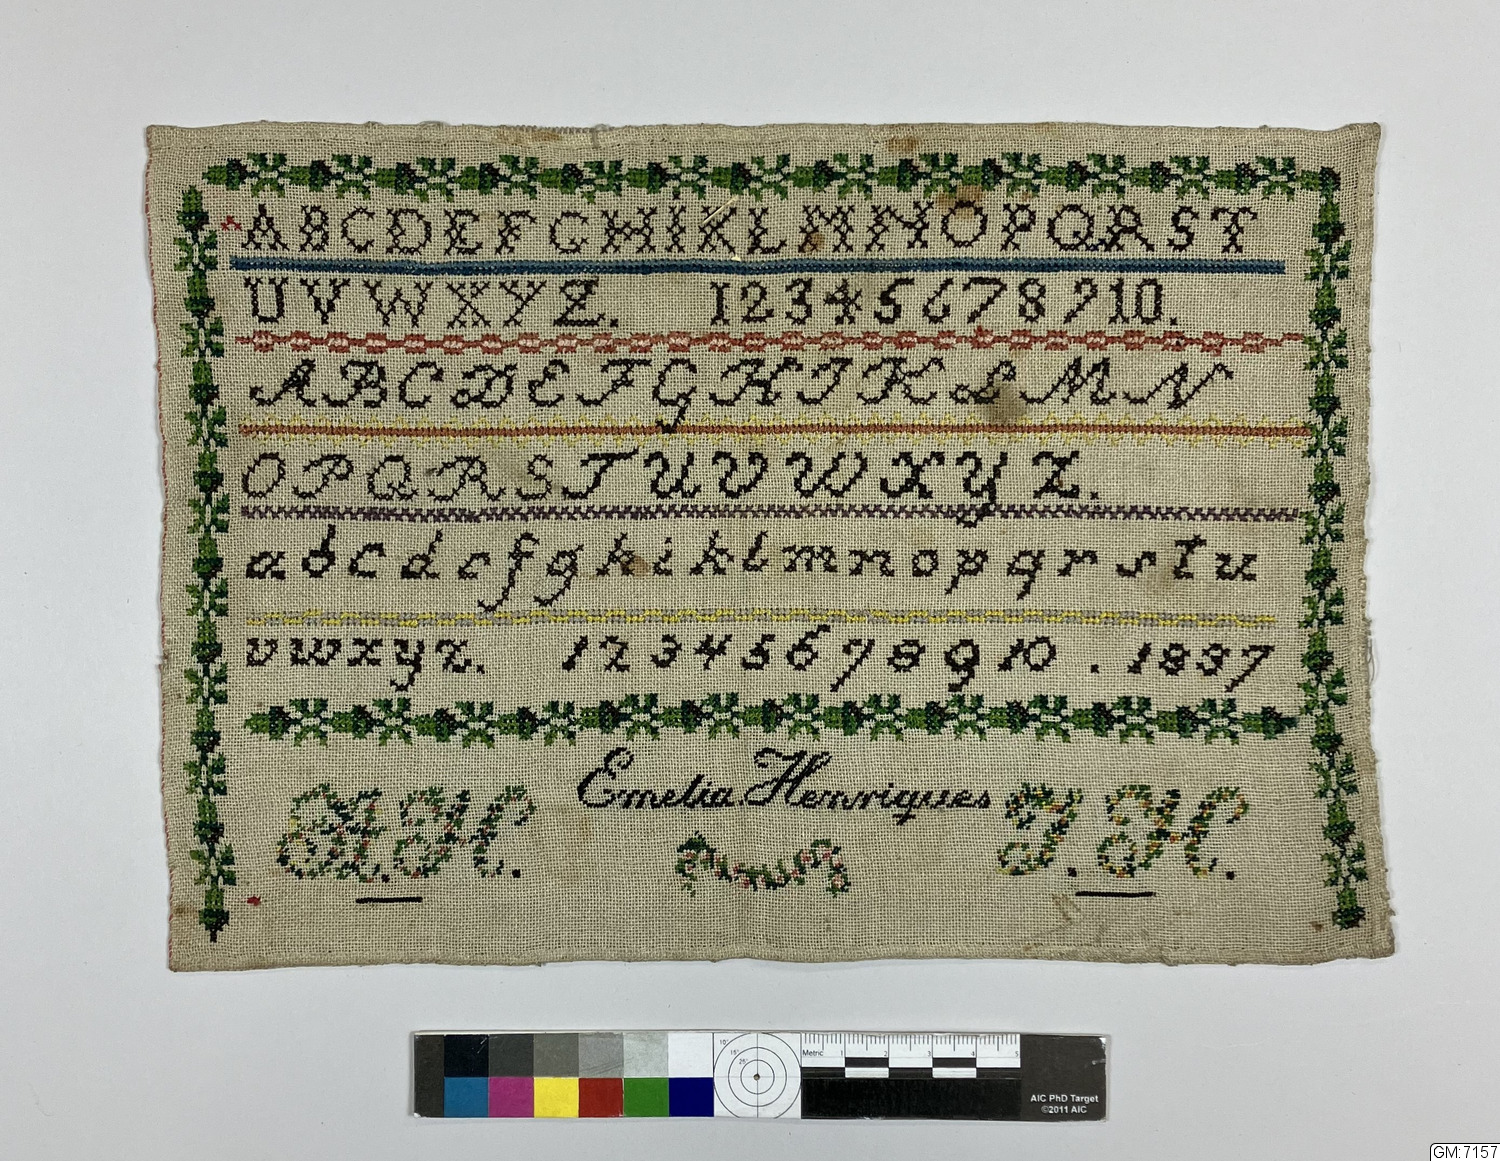 A B C D E F G H I K L M N O P Q R S T
U V W X Y Z. 1 2 3 4 5 6 7 8 9 10.
A B C D E F G H I K L M N
O P Q R S T U V W X Y Z.
a b c d e f g h i k l m n o p q r s t u
v w x y z. 1 2 3 4 5 6 7 8 9 10 . 1837
Emelia Henriques
A.H. J.H.
10° 15° 25°
Metric 1 2 3 4 5
AIC PhD Target
©2011 AIC
GM:7157